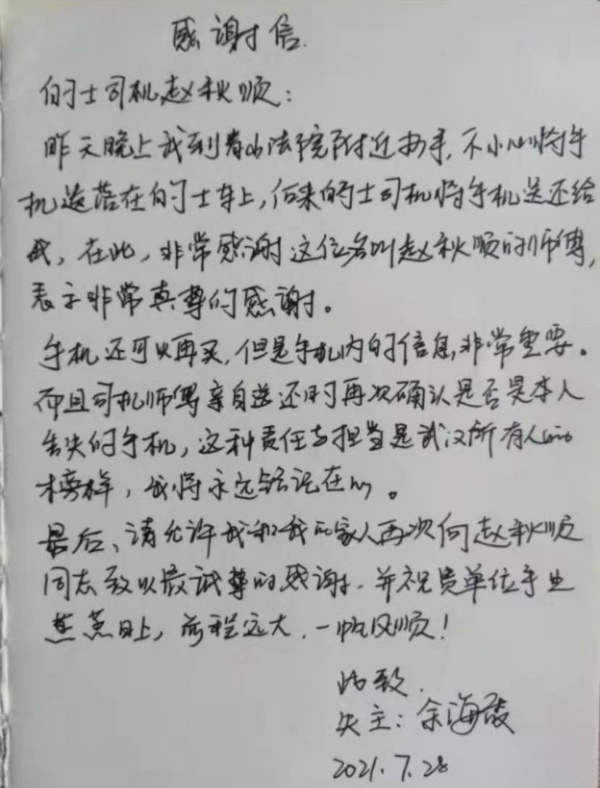 感谢信
的士司机赵秋顺:
昨天晚上我到青山法院附近办事,不小心将手
机遗落在的士车上,后来的士司机将手机送还给
我,在此,非常感谢这位名叫赵秋顺的师傅,
表示非常真尊的感谢。
手机还可以再买,但是手机内的信息非常重要。
而且司机师傅亲自送还时再次确认是否是本人
丢失的手机,这种责任与担当是武汉所有人的
榜样,我将永远铭记在心。
最后、请允许我和我的家人再次向赵秋顺
同志致以最诚尊的感谢,并祝贵单位事业
蒸蒸日上,前程远大,一帆风顺!
此致.
失主:余海
2021.7.28